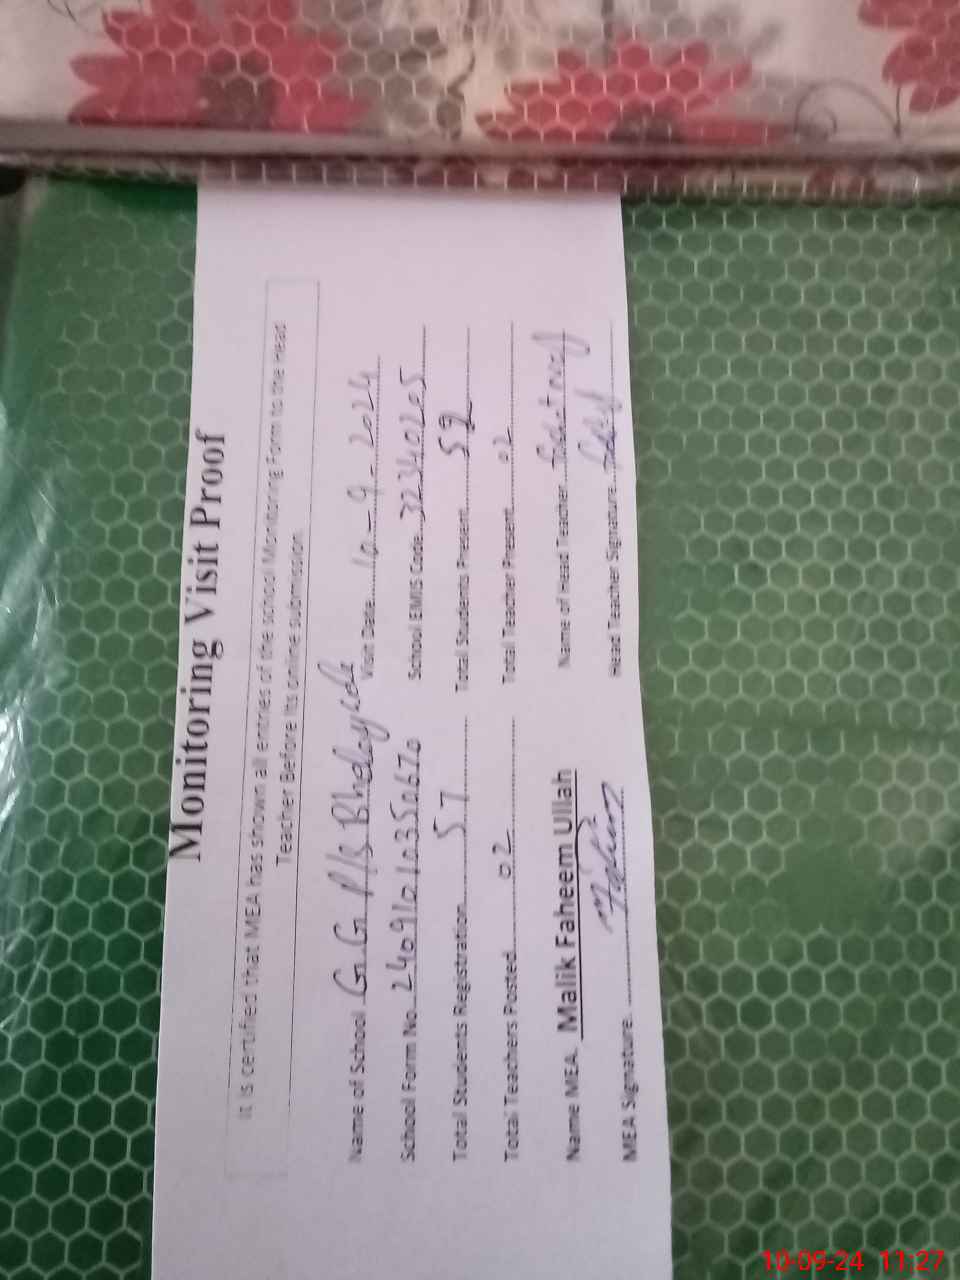 Monitoring Visit Proof
It is certified that MEA has shown all entries of the school Monitoring Form to the Head
Teacher Before its online submission.
Name of School G.G P/S Visit Date 10-9-2024
School Form No. School EMIS Code 32340205
Total Students Registration 57 Total Students Present 52
Total Teachers Posted 02 Total Teacher Present 02
Name MEA. Malik Faheem Ullah Name of Head Teacher
MEA Signature Head Teacher Signature
10-09-24 11:27